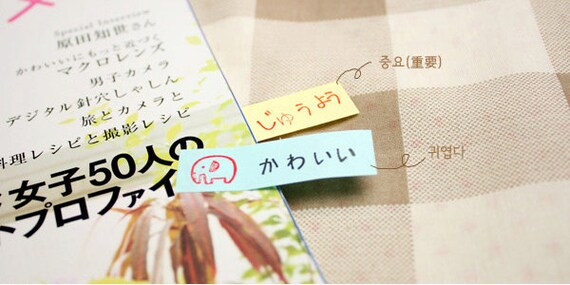 Special Interview
原田知世さん
かわいいにもっと近づく
マクロレンズ
男子カメラ
デジタル針穴しゃしん
旅とカメラと
料理レシピと撮影レシピ
女子50人の
トプロファイ
じゅうよう
かわいい
중요(重要)
귀엽다